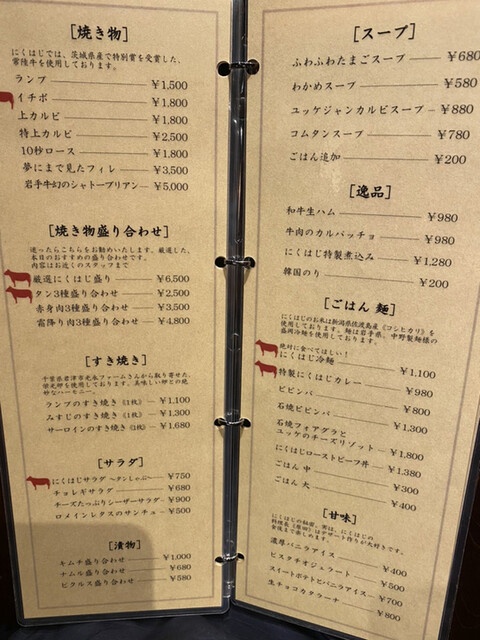 [焼き物]
にくはじでは、茨城県産で特別賞を受賞した、
常陸牛を使用しております。
ランプ ¥1,500
イチボ ¥1,800
上カルビ ¥1,800
特上カルビ ¥2,500
10秒ロース ¥1,800
夢にまで見たフィレ ¥3,500
岩手牛幻のシャトーブリアン ¥5,000
[焼き物盛り合わせ]
迷ったらこちらをお勧めいたします。厳選した、
本日のおすすめの盛り合わせです。
内容はお近くのスタッフまで
厳選にくはじ盛り ¥6,500
タン3種盛り合わせ ¥2,500
赤身肉3種盛り合わせ ¥3,500
霜降り肉3種盛り合わせ ¥4,800
[すき焼き]
千葉県君津市光永ファームさんから取り寄せた、
栄光卵を使用しております。美味しい卵との絶
妙なハーモニー。
ランプのすき焼き(1枚) ¥1,100
みすじのすき焼き(1枚) ¥1,300
サーロインのすき焼き(1枚) ¥1,680
[サラダ]
にくはじサラダ 〜タンしゃぶ〜 ¥750
チョレギサラダ ¥680
チーズたっぷりシーザーサラダ ¥900
ロメインレタスのサンチュ ¥500
[漬物]
キムチ盛り合わせ ¥1,000
ナムル盛り合わせ ¥680
ピクルス盛り合わせ ¥580
[スープ]
ふわふわたまごスープ ¥680
わかめスープ ¥580
ユッケジャンカルビスープ ¥880
コムタンスープ ¥780
ごはん追加 ¥200
[逸品]
和牛生ハム ¥980
牛肉のカルパッチョ ¥980
にくはじ特製煮込み ¥1,280
韓国のり ¥200
[ごはん 麺]
にくはじのお米は新潟県佐渡島産《コシヒカリ》を
使用しております。麺は岩手県、中野製麺様の
盛岡冷麺を使用しております。
絶対に食べてほしい！
にくはじ冷麺 ¥1,100
特製にくはじカレー ¥980
ビビンバ ¥800
石焼ビビンバ ¥1,300
石焼フォアグラと
ユッケのチーズリゾット ¥1,800
にくはじローストビーフ丼 ¥1,380
ごはん 中 ¥300
ごはん 大 ¥400
[甘味]
にくはじの秘密。実は、にくはじの
料理長はデザート作りが大好きです。
食後まで楽しめます。
濃厚バニラアイス ¥400
ピスタチオジェラート ¥500
スイートポテトとバニラアイス ¥700
生チョコカタラーナ ¥800